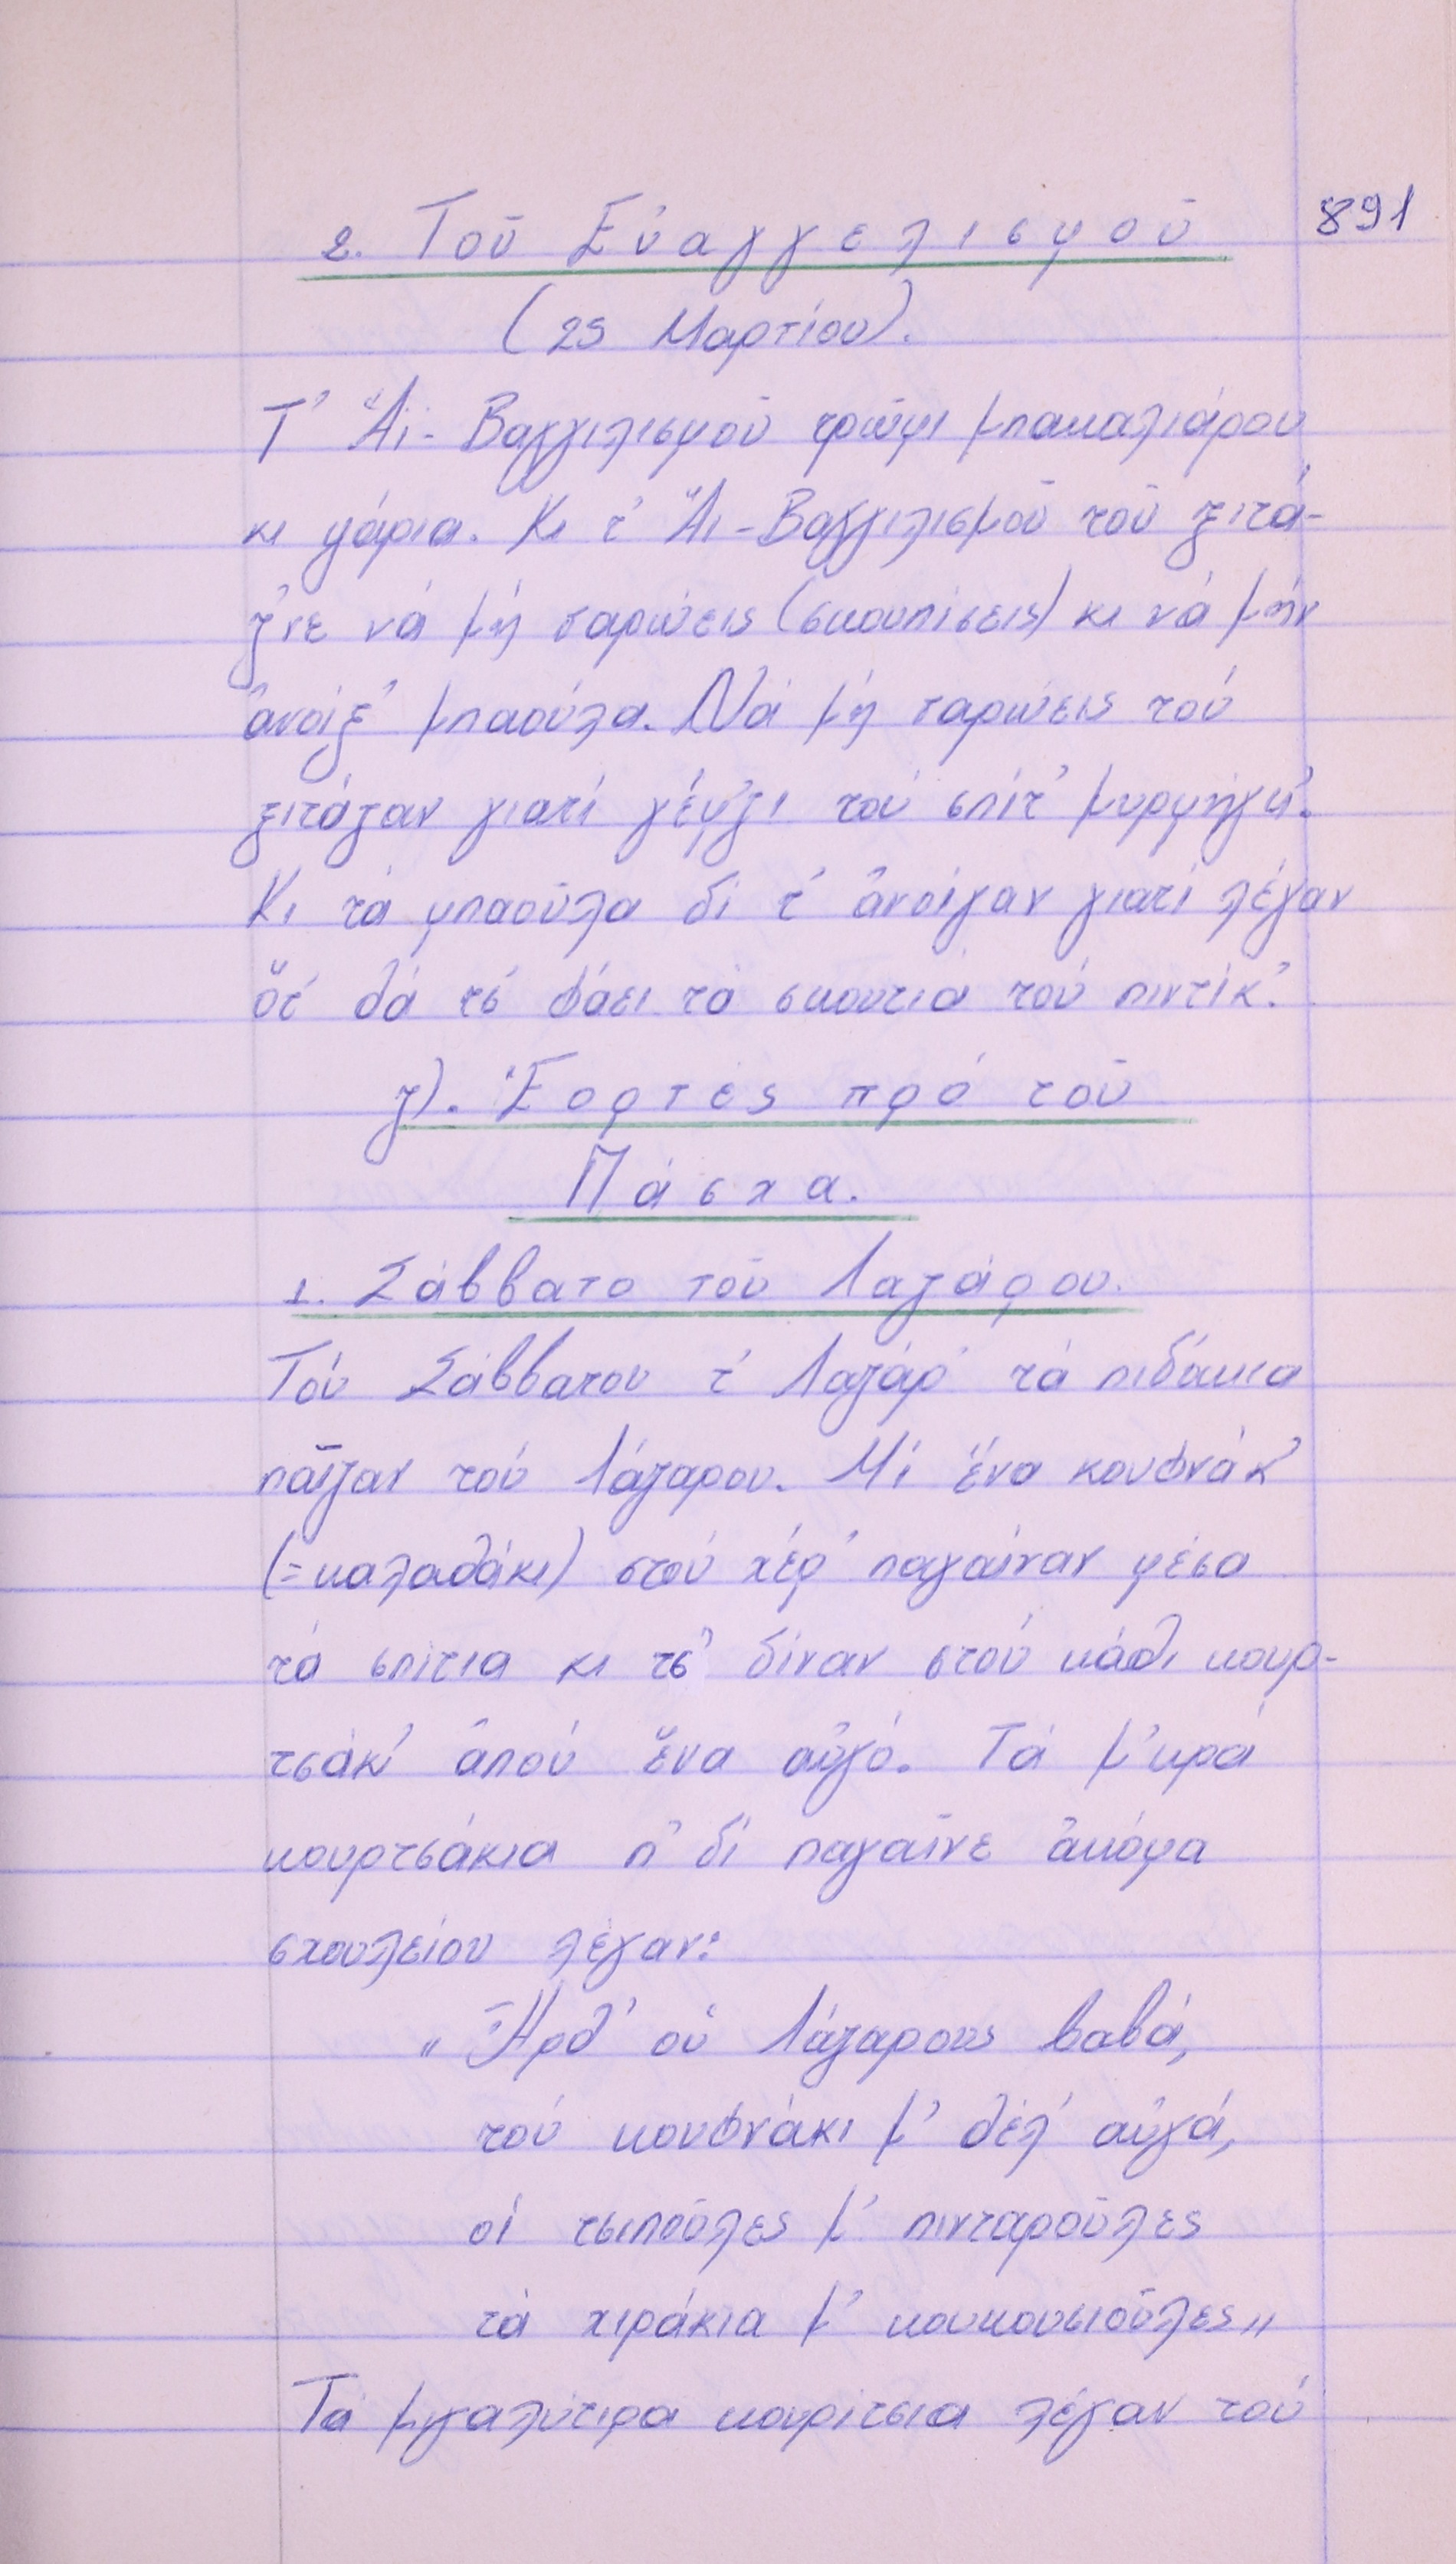 891
2. Τοῦ Εὐαγγελισμοῦ
(25 Μαρτίου).
Τ' Ἄϊ-Βαγγιλισμοῦ τρῶμι μπακαλιάρου
κι ψάρια. Κι τ' Ἄι-Βαγγιλισμοῦ τοῦ ξιτά-
ζ'νε νά μή σαρώεις (σκουπίσεις) κι νά μήν
ἀνοίξ' μπαούλα. Νά μή σαρώεις τού
ξιτάζαν γιατί γέμ'ζι τού σπίτ' μυρμήγκ'.
Κι τά μπαοῦλα δί τ' ἀνοίγαν γιατί λέγαν
ὅτ' θά τσ' φάει τά σκουτιά τού πιντίκ'.
γ). Ἑορτές πρό τοῦ
Πάσχα.
1. Σάββατο τοῦ Λαζάρου.
Τού Σάββατου τ' Λαζάρ' τά πιδάκια
παῖζαν τού Λάζαρου. Μί ἕνα κουφνάκ'
(=καλαθάκι) στού χέρ' παγαίναν μέσα
τά σπίτια κι τσ' δίναν στού κάθι κουρ-
τσάκ' ἀπού ἕνα αὐγό. Τά μ'κρά
κουρτσάκια π' δί παγαῖνε ἀκόμα
σχουλείου λέγαν:
"Ἦρθ' οὑ Λάζαρους βαβά,
τού κουφνάκι μ' θέλ' αὐγά,
οἱ τσιποῦλες μ' πινταροῦλες
τά χιράκια μ' κουκουσιοῦλες"
Τά μιγαλύτιρα κουρίτσια λέγαν τού